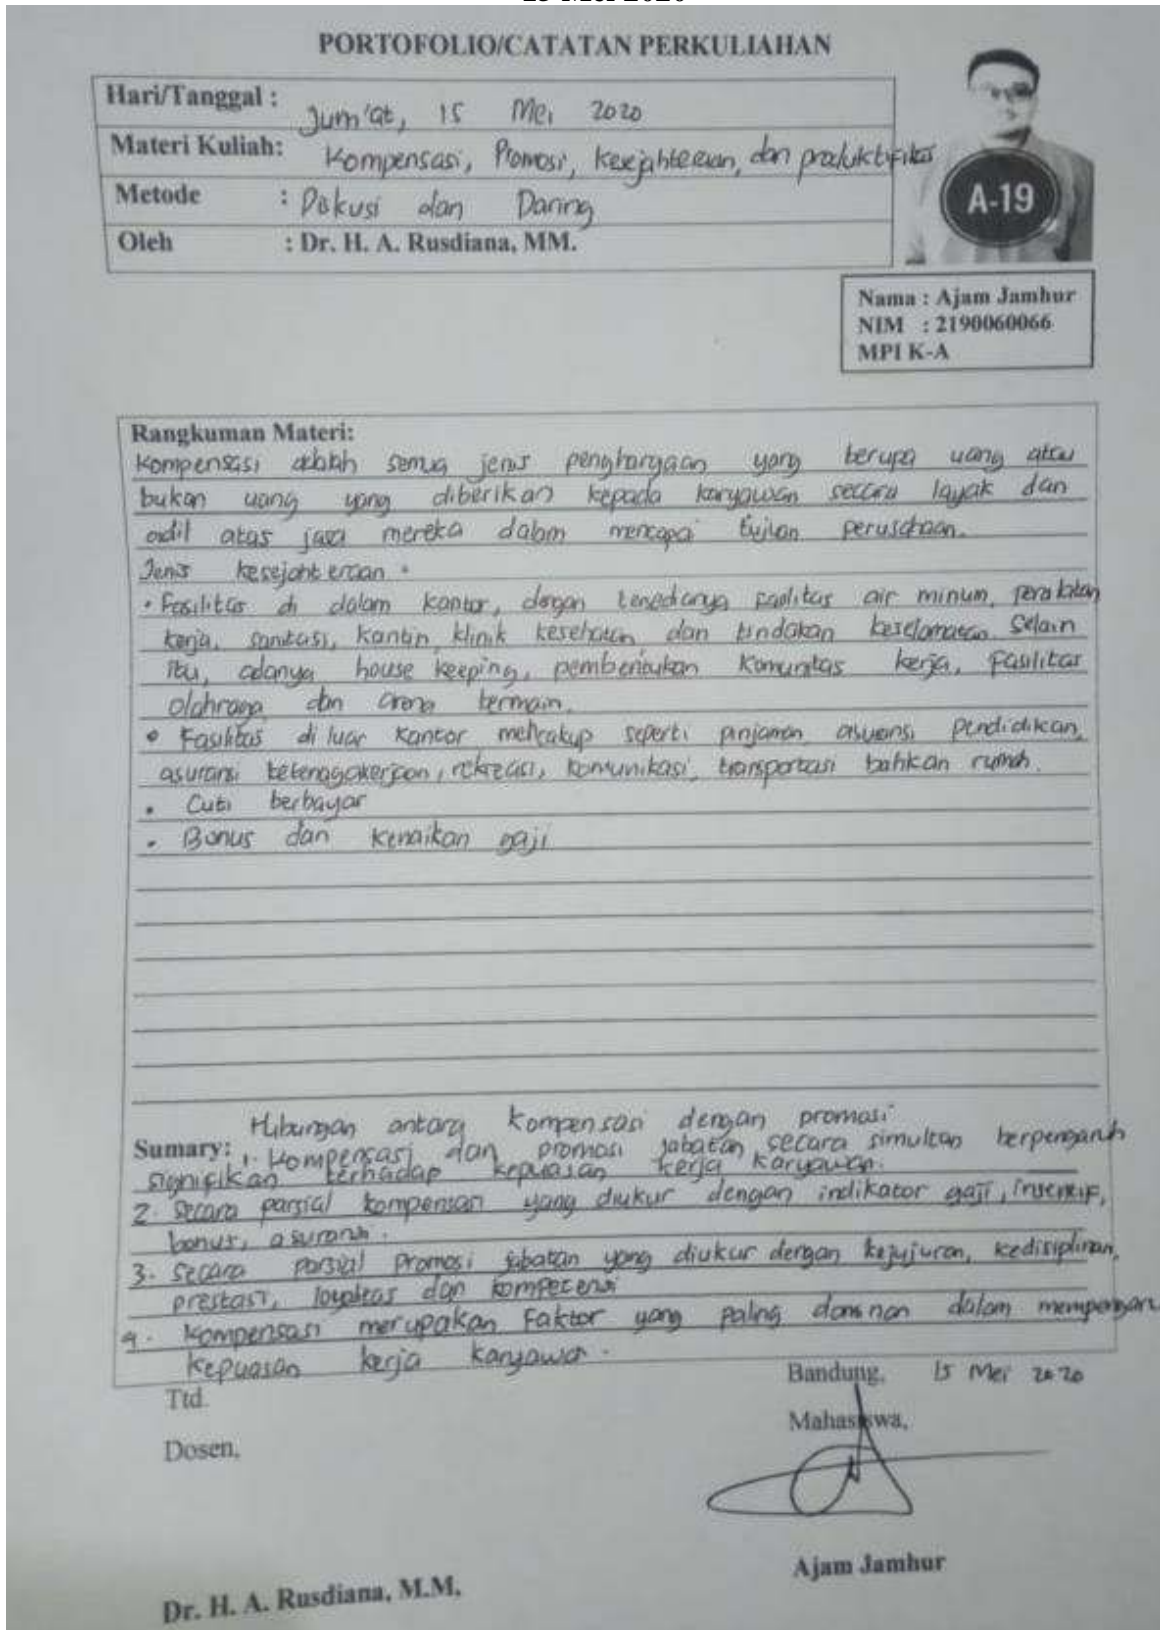 15 Mei 2020
PORTOFOLIO/CATATAN PERKULIAHAN
Hari/Tanggal : Jum'at, 15 Mei 2020
Materi Kuliah: Kompensasi, Promosi, Kesejahteraan, dan produktifitas
Metode : Diskusi dan Daring
Oleh : Dr. H. A. Rusdiana, MM.
A-19
Nama : Ajam Jamhur
NIM : 2190060066
MPI K-A
Rangkuman Materi:
Kompensasi adalah semua jenis penghargaan yang berupa uang atau
bukan uang yang diberikan kepada karyawan secara layak dan
adil atas jasa mereka dalam mencapai tujuan perusahaan.
Jenis kesejahteraan.
• Fasilitas di dalam kantor, dengan fasilitas air minum, peralatan
kerja, sanitasi, kantin, klinik kesehatan dan tindakan keselamatan. Selain
itu, adanya house keeping, pembentukan komunitas kerja, Fasilitas
olahraga dan arena bermain.
• Fasilitas di luar kantor mencakup seperti pinjaman, asuransi pendidikan,
asuransi ketenagakerjaan, rekreasi, komunikasi, transportasi bahkan rumah.
• Cuti berbayar
• Bonus dan kenaikan gaji
Hubungan antara kompensasi dengan promosi
Sumary: 1. Kompensasi dan promosi jabatan secara simultan berpengaruh
signifikan terhadap kepuasan kerja karyawan.
2. Secara parsial kompensasi yang diukur dengan indikator gaji, insentif,
bonus, asuransi.
3. Secara parsial Promosi jabatan yang diukur dengan kejujuran, kedisiplinan,
prestasi, loyalitas dan kompetensi
4. Kompensasi merupakan Faktor yang paling dominan dalam
kepuasan kerja karyawan.
Bandung, 15 Mei 2020
Ttd.
Mahasiswa,
Dosen,
Ajam Jamhur
Dr. H. A. Rusdiana, M.M.